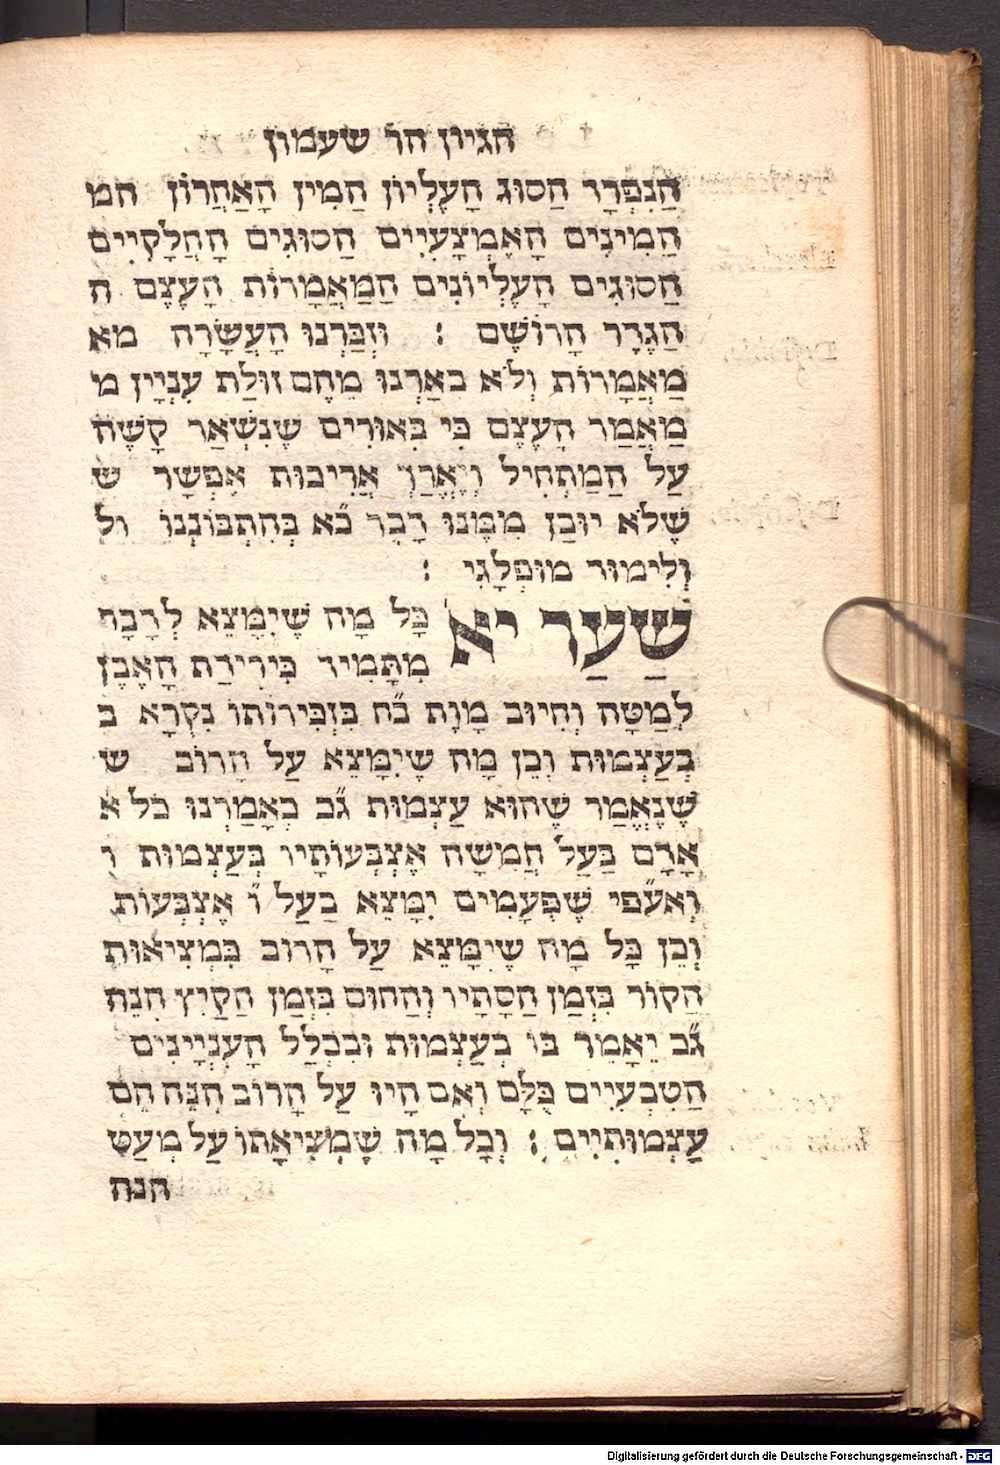 הגיון הר שעמון
הַנִפְרָד הַסוּג הָעֶלְיוֹן הַמִין הָאַחֲרוֹן המ
הַמִינִים הָאֶמְצָעִיִים הַסוּגִים הָחֲלָקִיִים
הַסוּגִים הָעֶלְיוֹנִים הַמַאֲמָרוֹת הָעֶצֶם ה
הַגֶדֶר הָרוֹשֶׁם : וְזָכַּרְנוּ הָעֲשָׂרָה מא
מַאֲמָרוֹת וְלֹא בֵאַרְנוּ מֵהֶם זוּלַת עִנְיָין מ
מַאֲמַר הָעֶצֶם כִּי בִּאוּרִים שֶׁנִשְׁאַר קָשֶׁה
עַל הַמַתְחִיל וְיֶאֱרַךְ אֲרִיכוּת אֶפְשָׁר ש
שֶׁלֹא יוּבַן מִמֶנוּ דָבָר כ״א בְּהִתְבּוֹנְנוֹ ול
וְלִימוּד מוּפְלָגִי :
שַׁעַר יא כָּל מָה שֶׁיִמָצֵא לְדָבָר
מִתָּמִיד כִּירִידַת הָאֶבֶן
לְמַטָּה וְחִיוּב מָוֶת ב״ח בִּזְבִּירוֹתוֹ נִקְרָא ב
בְעַצְמוּת וְכֵן מָה שֶיִמָצֵא עַל הָרוֹב ש
שֶׁנֶאֱמַר שֶׁהוּא עַצְמוּת ג״כ כְאָמַרְנוּ כל א
אָדָם בַּעַל חֲמִשָׁה אֶצְבְּעוֹתָיו בְּעַצְמוּת ו
וְאע״פי שֶׁפְּעָמִים יִמָצֵא בַעַל ו׳ אֶצְבְּעוֹת
וְכֵן כָּל מָה שֶׁיִמָצֵא עַל הָרוֹב כִּמְצִיאוּת
הַקוֹר בִּזְמַן הַסְתָיו וְהַחוֹם בִּזְמַן הַקַיִץ הִנֵה
ג״כ יֵאָמֵר בּוֹ בְעַצְמוּת וּבִכְלַל הָעִנְיָינִים
הַטִבְעִיִים כֻּלָם וְאִם הָיוּ עַל הָרוֹב הִנֵה הֵם
עַצְמוּתִיִים : וְכָל מָה שֶׁמְצִיאָתוֹ עַל מְעַט
הנה
Digitalisierung gefördert durch die Deutsche Forschungsgemeinschaft - DFG